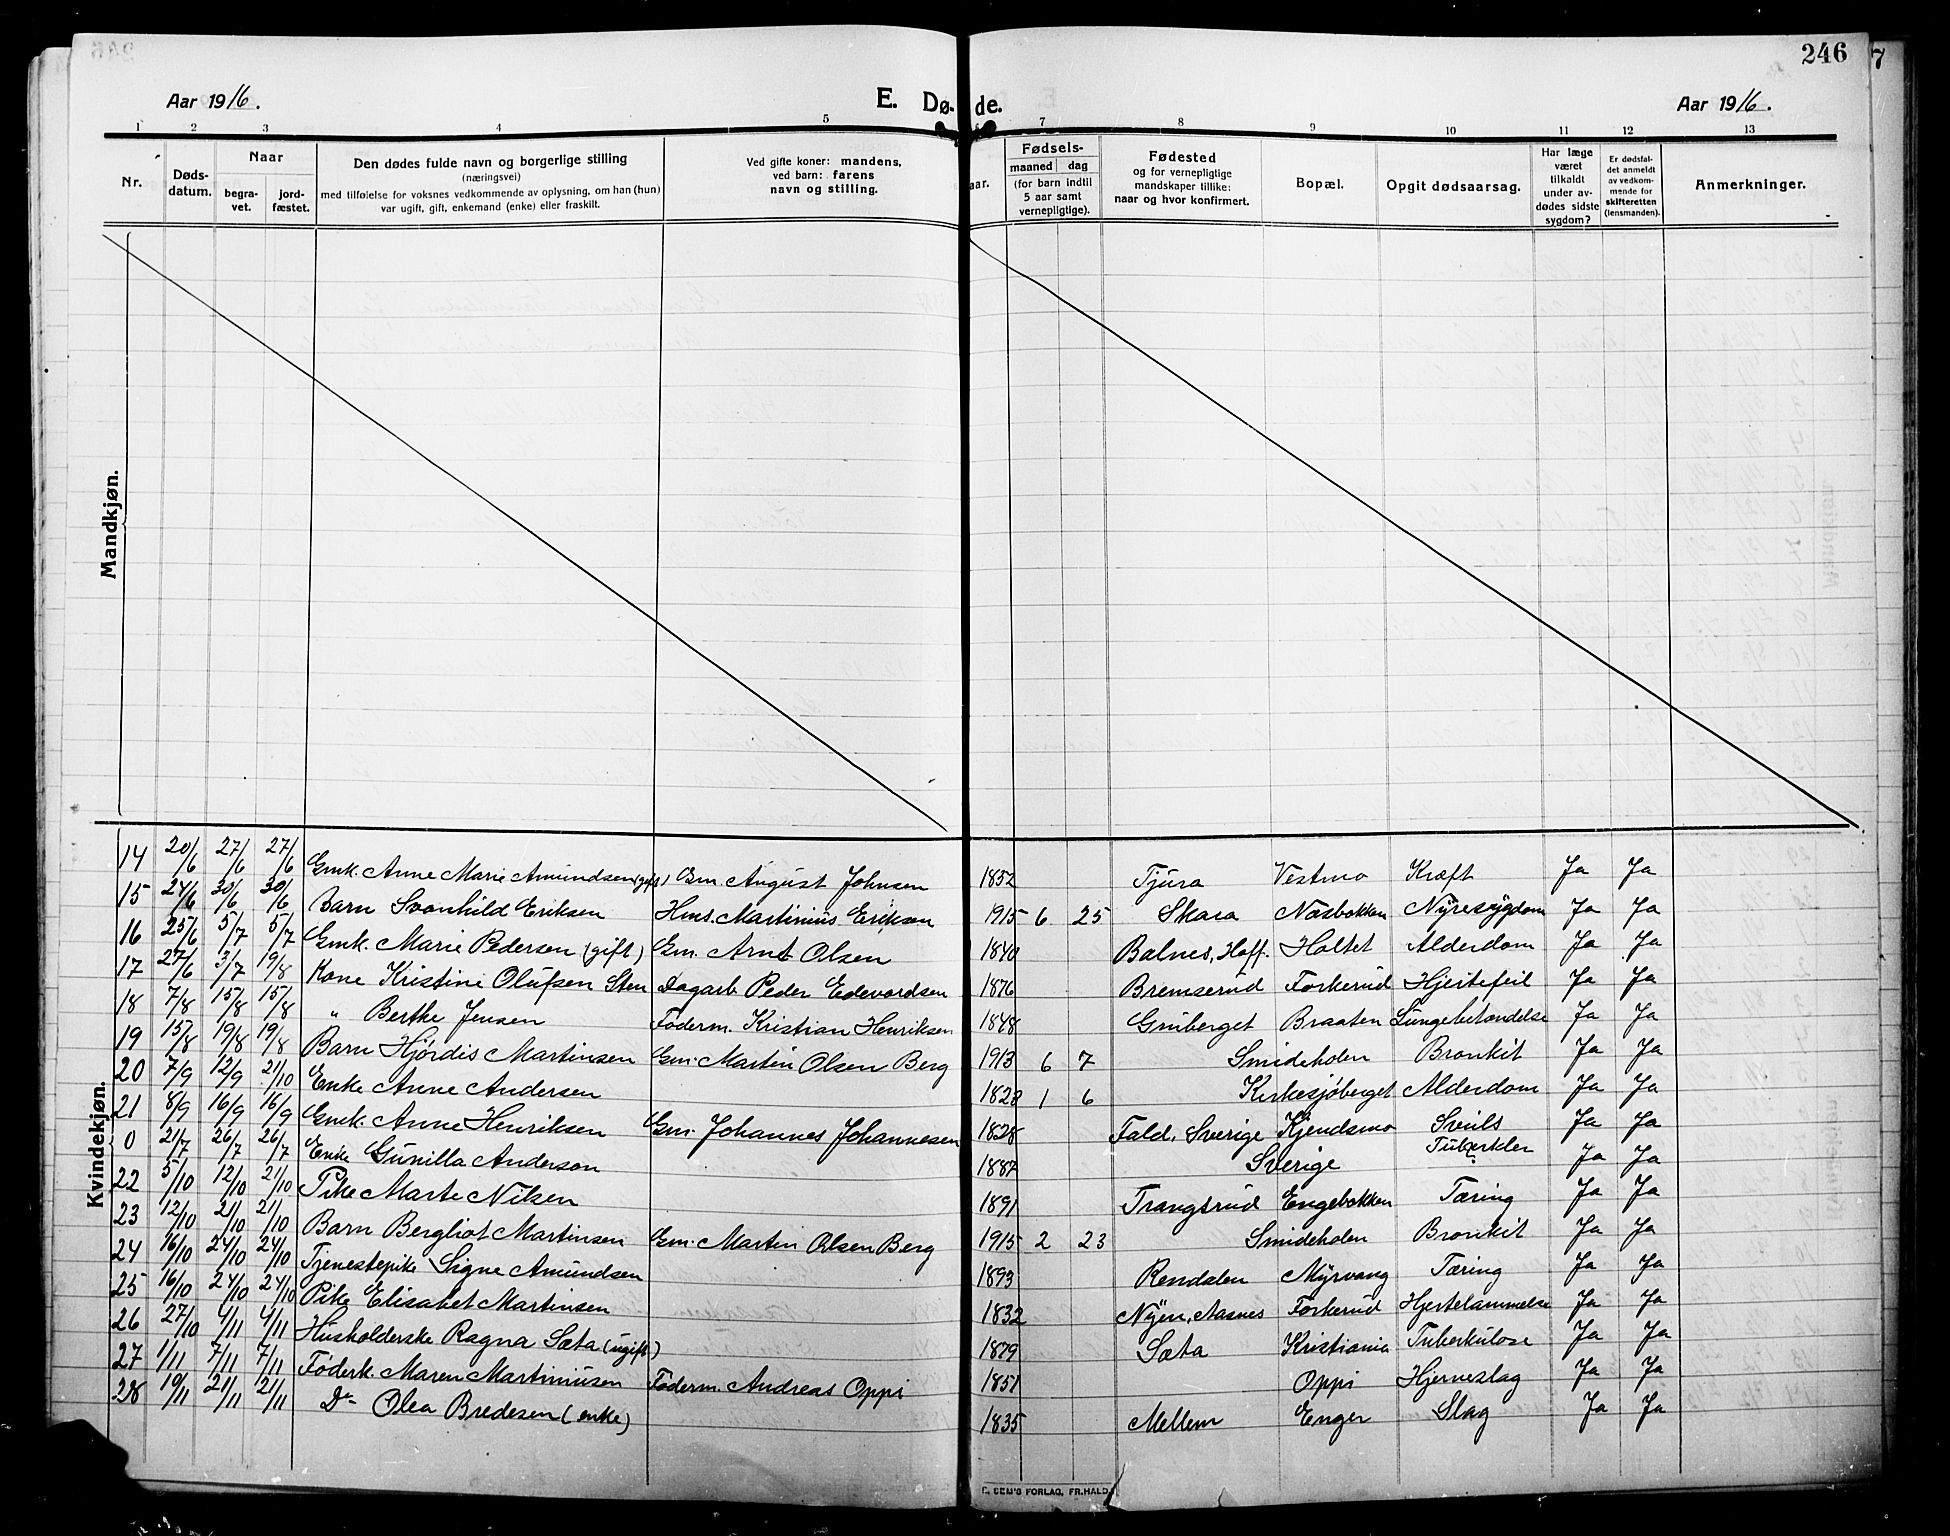 246
7
Aar 1916.
E. Dø-de.
Aar 1916.
1 2 3 4 5 7 8 9 10 11 12 13
Nr.
Døds-datum.
Naar
begra-vet.
jord-fæstet.
Den dødes fulde navn og borgerlige stilling
(næringsvei)
med tilføielse for voksnes vedkommende av oplysning, om han (hun)
var ugift, gift, enkemand (enke) eller fraskilt.
Ved gifte koner: mandens,
ved barn: farens
navn og stilling.
aar.
Fødsels-
maaned dag
(for barn indtil
5 aar samt
vernepligtige).
Fødested
og for vernepligtige
mandskaper tillike:
naar og hvor konfirmert.
Bopæl.
Opgit dødsaarsag.
Har læge
været
tilkaldt
under av-
dødes sidste
sygdom?
Er dødsfal-
det anmeldt
av vedkom-
mende for
skifteretten
(lensmanden).
Anmerkninger.
Mandkjøn.
Kvindekjøn.
14 20/6 27/6 27/6 Gmk. Anne Marie Amundsen (gift) Gm. August Johnsen 1852 Tjura Vestmo Kræft Ja Ja
15 24/6 30/6 30/6 Barn Svanhild Eriksen Hms. Martinius Eriksen 1915 6 25 Skara Næsbakken Nyresygdom Ja Ja
16 25/6 5/7 5/7 Gmk. Marie Pedersen (gift) Gm. Arnt Olsen 1840 Balnes, Hoff. Holtet Alderdom Ja Ja
17 27/6 3/7 19/8 Kone Kristine Olufsen Sten Dagarb Peder Edevardsen 1876 Bremserud Forkerud Hjertefeil Ja Ja
18 7/8 15/8 15/8 " Berthe Jensen Føderm. Kristian Henriksen 1848 Gruberget Braaten Lungebetændelse Ja Ja
19 15/8 19/8 19/8 Barn Hjørdis Martinsen Gm. Martin Olsen Berg 1913 6 7 Smideholen Bronkit Ja Ja
20 7/9 12/9 21/10 Enke Anne Andersen 1828 1 6 Kirkesjøberget Alderdom Ja Ja
21 8/9 16/9 16/9 Gmk. Anne Henriksen Gm. Johannes Johannesen 1828 Fald, Sverige Kjendsmo Senils Ja Ja
0 21/7 26/7 26/7 Enke Gunilla Anderson 1887 Sverige Tuberkler Ja Ja
22 5/10 12/10 21/10 Pike Marte Nilsen 1891 Trangsrud Engebakken Tæring Ja Ja
23 12/10 21/10 21/10 Barn Bergliot Martinsen Gm. Martin Olsen Berg 1915 2 23 Smideholen Bronkit Ja Ja
24 16/10 24/10 24/10 Tjenestepike Signe Amundsen 1893 Rendalen Myrvang Tæring Ja Ja
25 16/10 24/10 24/10 Pike Elisabet Martinsen 1832 Nyen, Aasnes Forkerud Hjertelammelse Ja Ja
26 27/10 4/11 4/11 Husholderske Ragna Sæta (ugift) 1879 Sæta Kristiania Tuberkulose Ja Ja
27 1/11 7/11 7/11 Føderk. Maren Martiniusen Føderm. Andreas Oppi 1851 Oppi Hjerneslag Ja Ja
28 19/11 21/11 21/11 Do Olea Bredesen (enke) 1835 Mellem Enger Slag Ja Ja
SEM'S FORLAG, FR.HALD.